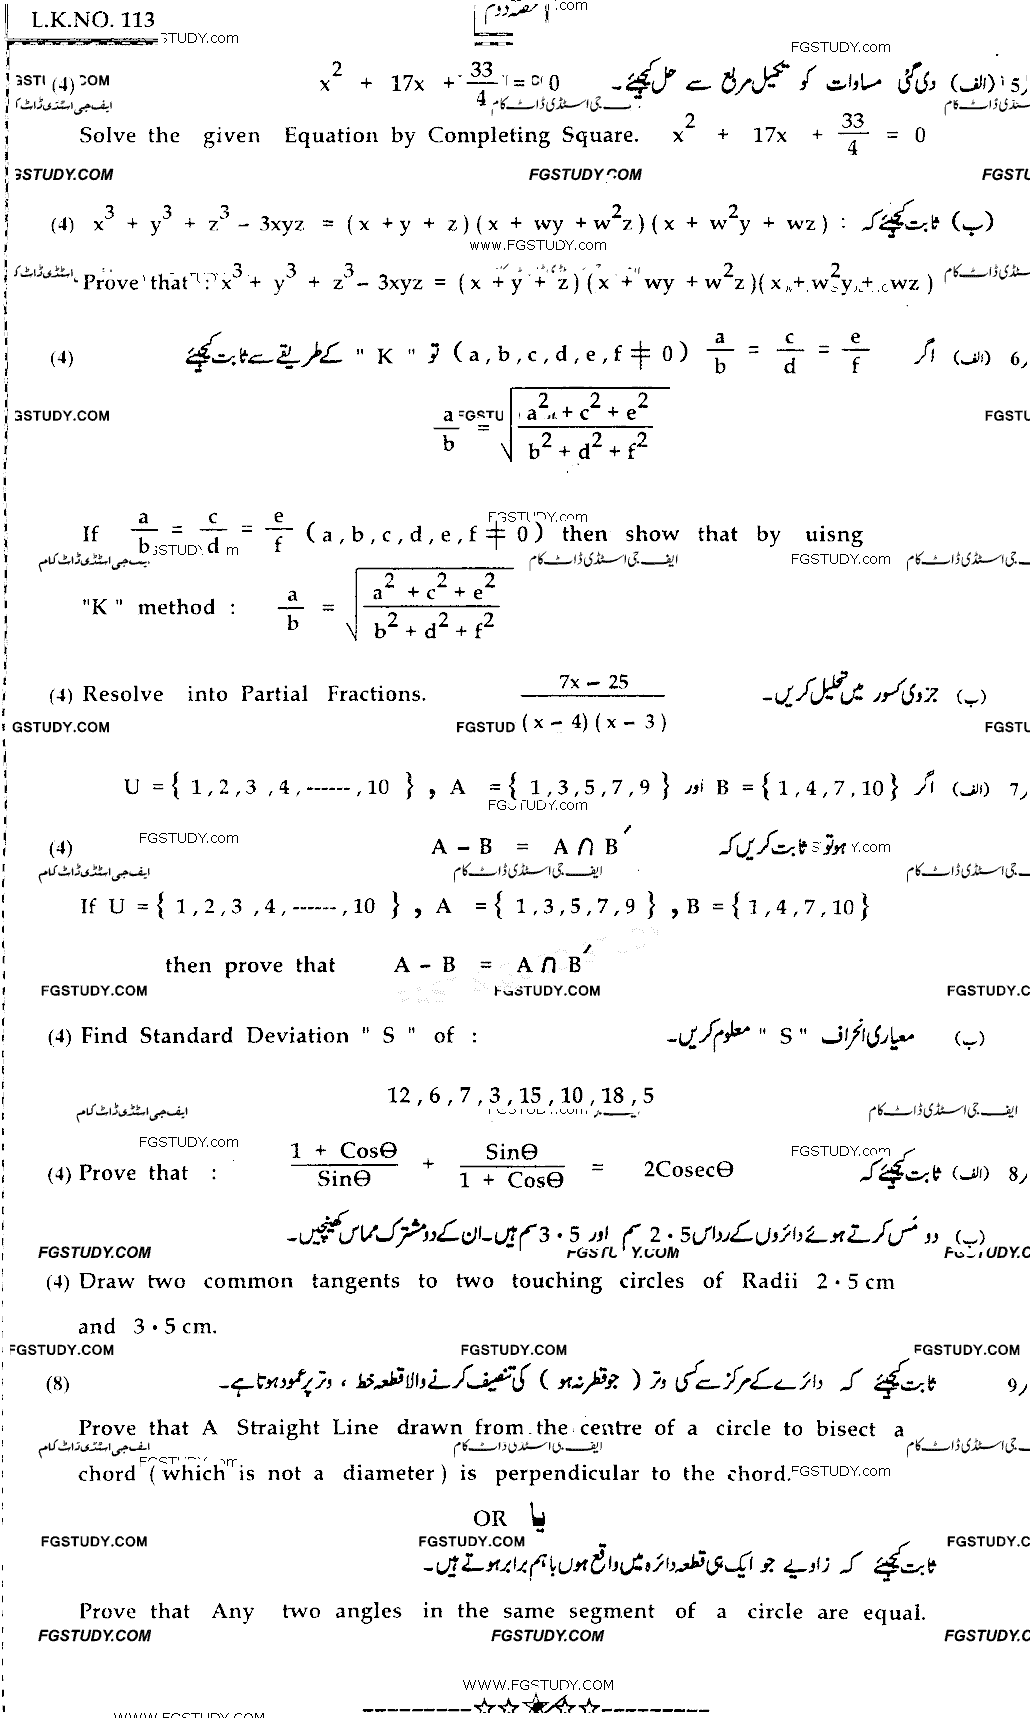 L.K.NO. 113
حصہ دوم
5, (الف) دی گئی مساوات کو تکمیل مربع سے حل کیجئے۔ x² + 17x + 33/4 = 0 (4)
Solve the given Equation by Completing Square. x² + 17x + 33/4 = 0
(ب) ثابت کیجئے کہ : x³ + y³ + z³ - 3xyz = (x + y + z)(x + wy + w²z)(x + w²y + wz) (4)
Prove that : x³ + y³ + z³ - 3xyz = (x + y + z)(x + wy + w²z)(x + w²y + wz)
6, (الف) اگر a/b = c/d = e/f (a, b, c, d, e, f ≠ 0) تو "K" کے طریقے سے ثابت کیجئے (4)
a/b = √((a² + c² + e²)/(b² + d² + f²))
If a/b = c/d = e/f (a, b, c, d, e, f ≠ 0) then show that by uisng
"K" method : a/b = √((a² + c² + e²)/(b² + d² + f²))
(ب) جزوی کسور میں تحلیل کریں۔ (7x - 25)/((x - 4)(x - 3)) (4) Resolve into Partial Fractions.
7, (الف) اگر U = { 1, 2, 3, 4, ------, 10 } , A = { 1, 3, 5, 7, 9 } اور B = { 1, 4, 7, 10 }
ہو تو ثابت کریں کہ A - B = A ∩ B′ (4)
If U = { 1, 2, 3, 4, ------, 10 } , A = { 1, 3, 5, 7, 9 } , B = { 1, 4, 7, 10 }
then prove that A - B = A ∩ B′
(4) Find Standard Deviation " S " of : (ب) معیاری انحراف "S" معلوم کریں۔
12, 6, 7, 3, 15, 10, 18, 5
(4) Prove that : (1 + Cosθ)/Sinθ + Sinθ/(1 + Cosθ) = 2Cosecθ 8, (الف) ثابت کیجئے کہ
(ب) دو مَس کرتے ہوئے دائروں کے رداس 2.5 سم اور 3.5 سم ہیں۔ ان کے دو مشترک مماس کھینچیں۔
(4) Draw two common tangents to two touching circles of Radii 2.5 cm
and 3.5 cm.
9, ثابت کیجئے کہ دائرے کے مرکز سے کسی وتر ( جو قطر نہ ہو ) کی تنصیف کرنے والا قطعہ خط ، وتر پر عمود ہوتا ہے۔ (8)
Prove that A Straight Line drawn from the centre of a circle to bisect a
chord (which is not a diameter) is perpendicular to the chord.
OR یا
ثابت کیجئے کہ زاویے جو ایک ہی قطعہ دائرہ میں واقع ہوں باہم برابر ہوتے ہیں۔
Prove that Any two angles in the same segment of a circle are equal.
WWW.FGSTUDY.COM